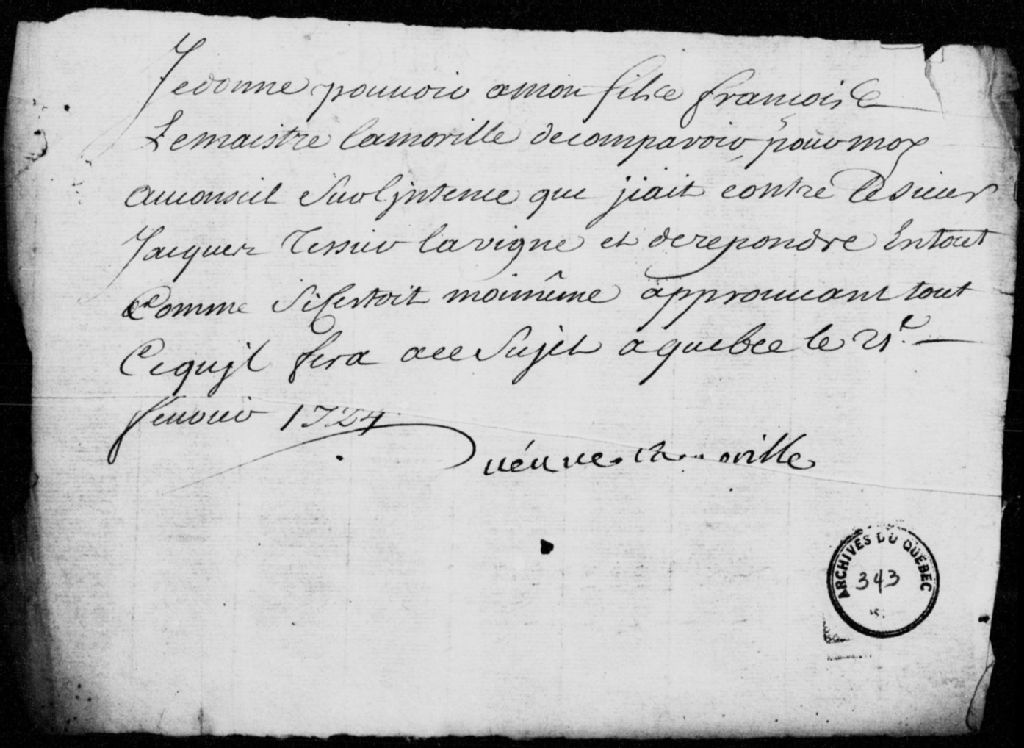 Je donne pouvoir a mon filse francois le
Lemaistre lamorille de comparoir pour moy
au conseil sur l'jntence que jiait contre le sieur
Jacques Tessier lavigne et de repondre En tout
Comme si sestoit moimême approuuant tout
Ce qujl fera a ce sujet a quebec le 21e
feuvrier 1724
veuue morille
ARCHIVES DU QUEBEC
343